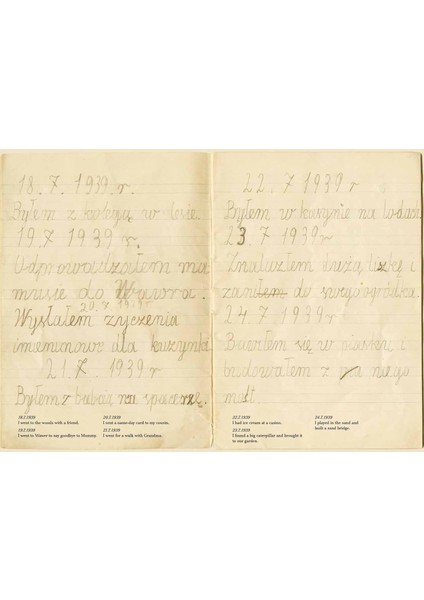 18. 7. 1939. r.
Byłem z kolegą w lesie.
19. 7 1939 r.
Odprowadzołem ma
musie do Wawra.
20. 7
Wysłałem zyczenia
imieninowe dla kuzynki
21. 7. 1939 r
Byłem z babcią na spacerze.
18.7.1939
I went to the woods with a friend.
19.7.1939
I went to Wawer to say goodbye to Mummy.
20.7.1939
I sent a name-day card to my cousin.
21.7.1939
I went for a walk with Grandma.
22. 7 1939 r
Byłem w kasynie na lodach
23. 7 1939 r
Znalazłem dużą liszkę i
do swego ogródka.
24. 7 1939 r
Bawiłem się w piasku i
budowałem z niego
most.
22.7.1939
I had ice cream at a casino.
23.7.1939
I found a big caterpillar and brought it
to our garden.
24.7.1939
I played in the sand and
built a sand bridge.